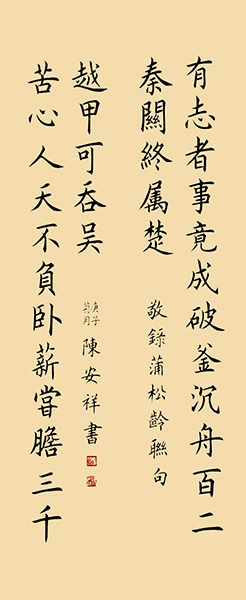 有志者事竟成破釜沉舟百二
秦關終属楚
敬錄蒲松齡聯句
苦心人天不負卧薪嘗膽三千
越甲可吞吴
庚子
菊月
陳安祥書